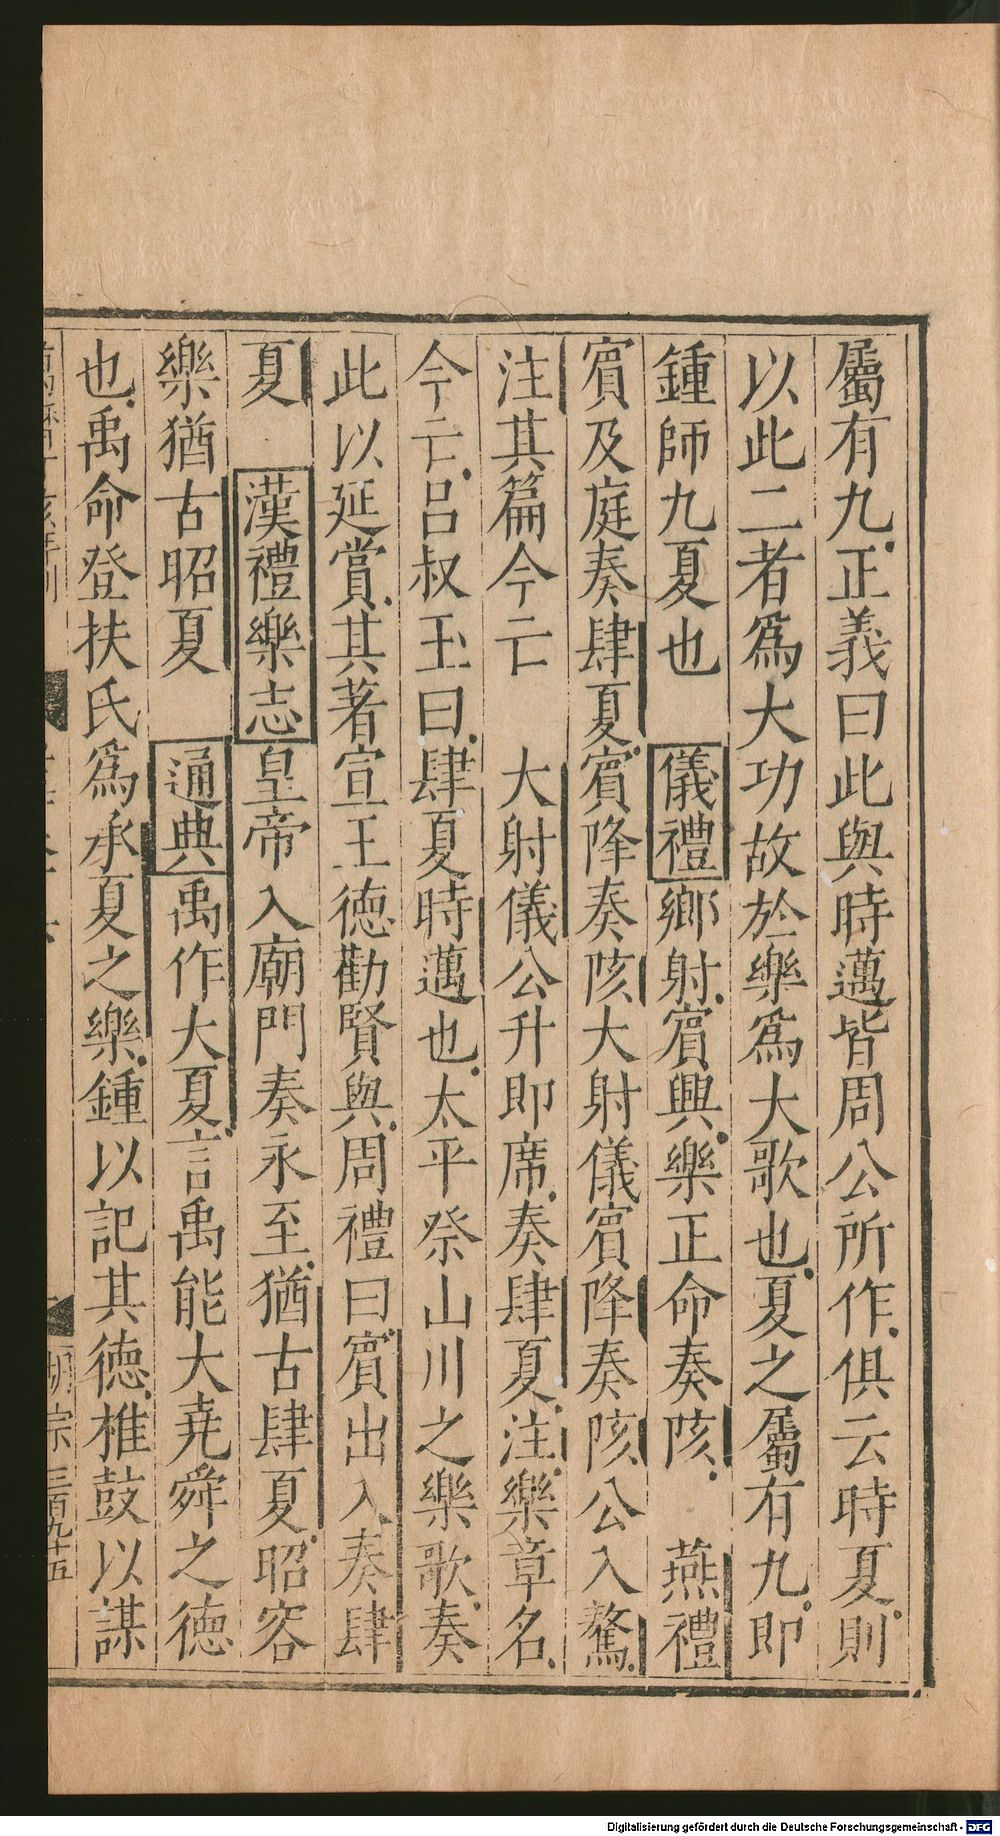 屬有九正義曰此與時邁皆周公所作俱云時夏則
以此二者爲大功故於樂爲大歌也夏之屬有九即
鍾師九夏也 儀禮鄉射賓興樂正命奏陔 燕禮
賓及庭奏肆夏賓降奏陔大射儀賓降奏陔公入驁
注其篇今亡 大射儀公升即席奏肆夏注樂章名
今亡呂叔玉曰肆夏時邁也太平祭山川之樂歌奏
此以延賞其著宣王徳勸賢與周禮曰賓出入奏肆
夏 漢禮樂志皇帝入廟門奏永至猶古肆夏昭容
樂猶古昭夏 通典禹作大夏言禹能大堯舜之徳
也禹命登扶氏爲承夏之樂鍾以記其徳椎鼓以謀
宗三百九十五
Digitalisierung gefördert durch die Deutsche Forschungsgemeinschaft - DFG